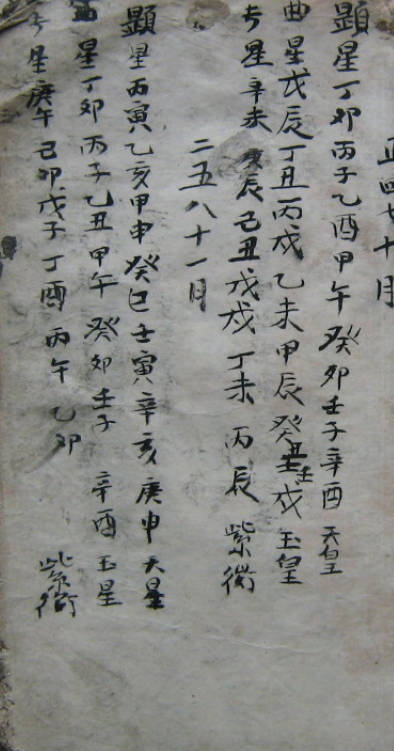 正四七十月
顯星丁卯丙子乙酉甲午癸卯壬子辛酉天皇
曲星戊辰丁丑丙戌乙未甲辰癸丑壬戌玉皇
专星辛未辰己丑戊戌丁未丙辰紫微
二五八十一月
顯星丙寅乙亥甲申癸巳壬寅辛亥庚申天星
曲星丁卯丙子乙丑甲午癸卯壬子辛酉玉星
专星庚午己卯戊子丁酉丙午乙卯紫微